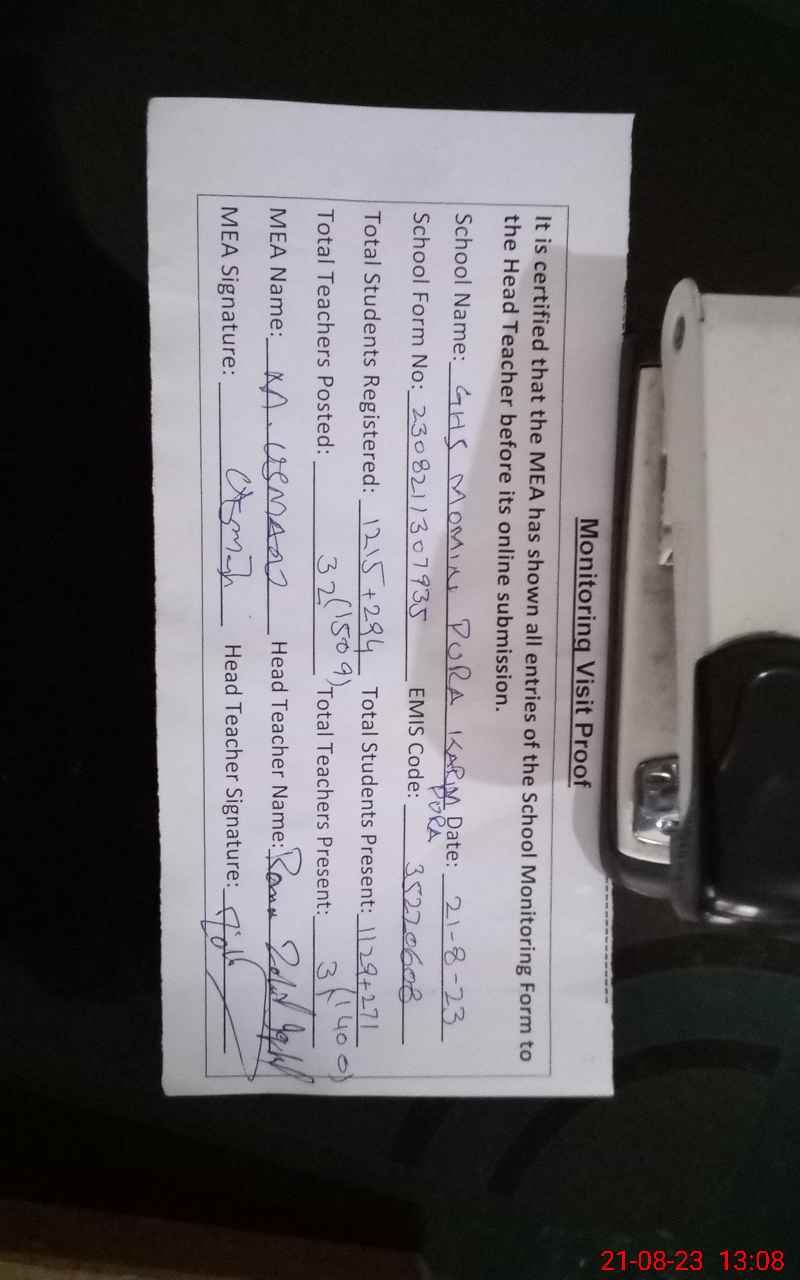 Monitoring Visit Proof
It is certified that the MEA has shown all entries of the School Monitoring Form to
the Head Teacher before its online submission.
School Name: GHS MOMIN PURA KARIM PURA Date: 21-8-23
School Form No: 2308211307935 EMIS Code: 35220608
Total Students Registered: 1215+294 Total Students Present: 1129+271
Total Teachers Posted: 32 (1509) Total Teachers Present: 31 (1400)
MEA Name: M. USMAN Head Teacher Name: Rana
MEA Signature: Usman Head Teacher Signature:
21-08-23 13:08